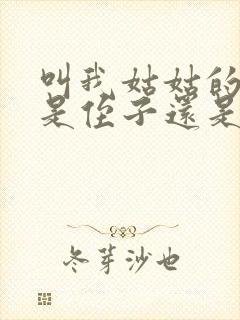 叫我姑姑的
是侄子還是
冬芽沙也